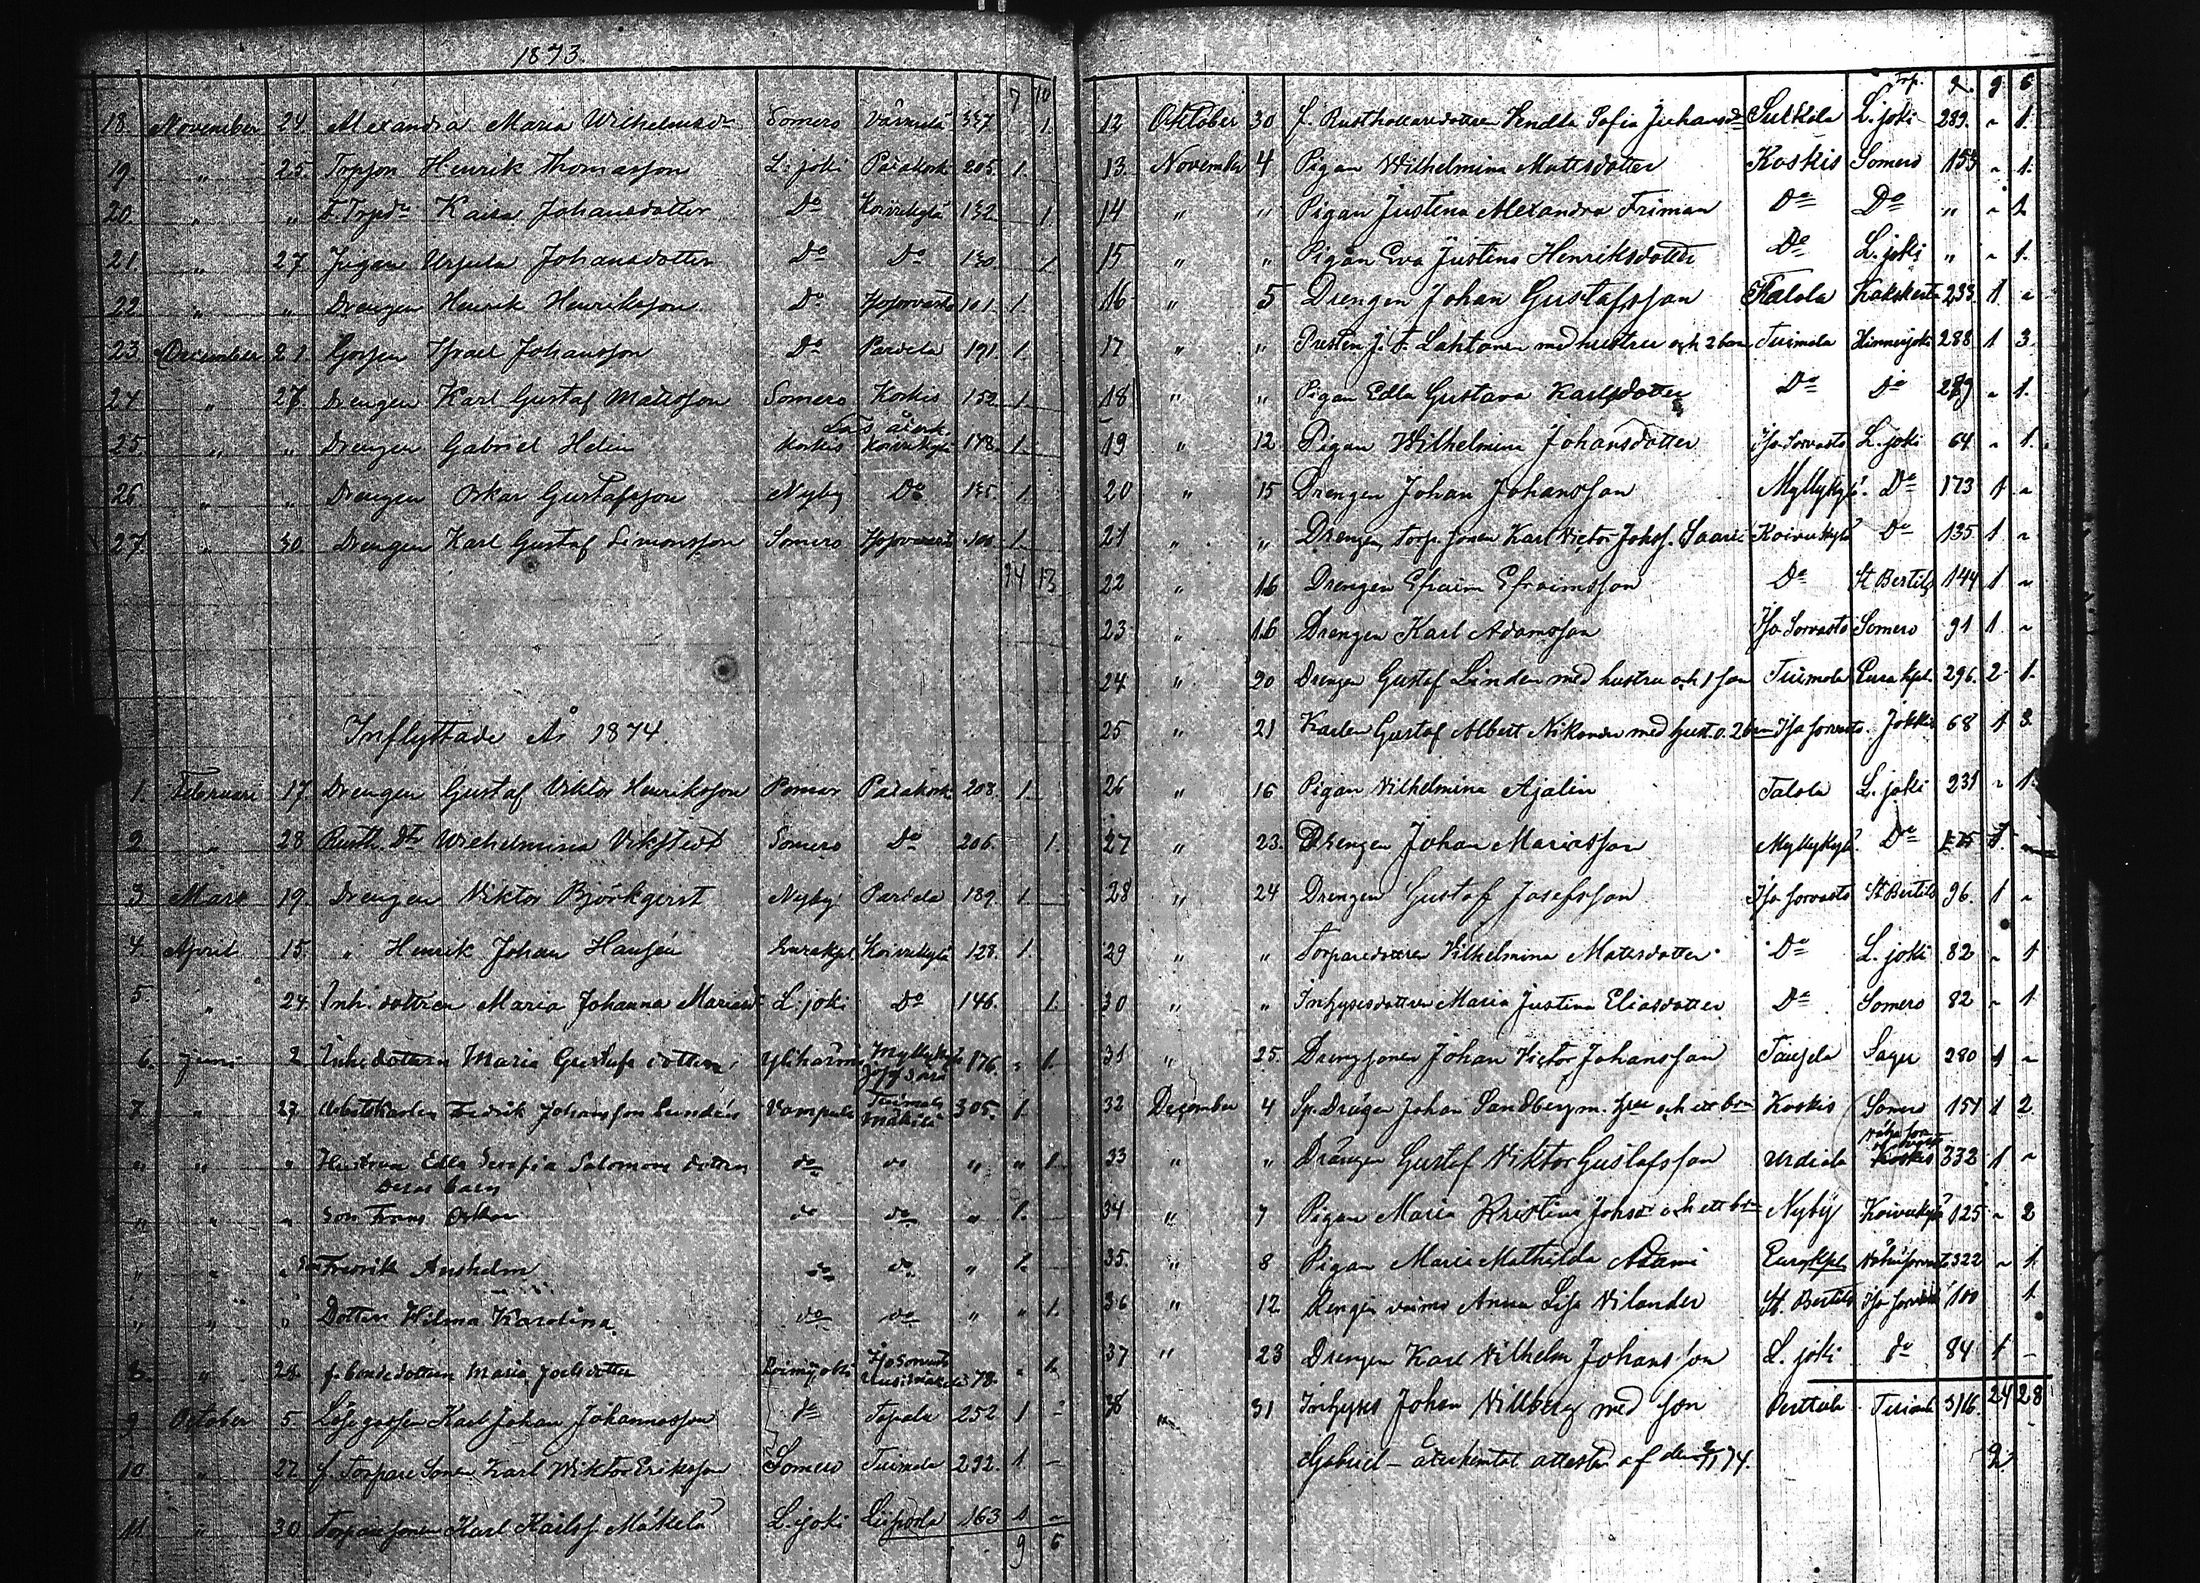 1873.
7 10
18. November 24. Alexandra Maria Wilhelmsdr Somero Värmälä 337 1.
19. " 25. Torpson Henrik Thomasson L. joki Patakosk. 205. 1.
20. " " F. Trpdr Kaisa Johansdotter Do Koivukylä 132 1.
21. " 27. Pigan Ursula Johansdotter Do Do 130. 1
22. " " Drengen Henrik Henriksson Do Isosorvasto 101. 1.
23. December 21. Gossen Israel Johansson Do Partela 191. 1.
24 " 27. Drengen Karl Gustaf Matsson Somero Koskis 152 1.
25. " " Drengen Gabriel Helin Koskis Koivukylä 148. 1.
26 " " Drengen Oskar Gustafsson Nyby Do 135. 1.
27. " 30. Drengen Karl Gustaf Simonsson Somero Isosorvasto 100. 1.
14 13
Inflyttade År 1874.
1. Februari 17. Drengen Gustaf Viktor Henriksson Pomar Patakosk. 208. 1.
2. " 28 Rusth. Dtr Wilhelmina Vikstedt Somero Do 206. 1.
3 Mars 19. Drengen Viktor Björkqvist Nyby Partela 189. 1.
4. April 15. " Henrik Johan Hansén Eurakpl. Koivukylä 128. 1.
5. " 24. Inh. dottren Maria Johanna Mariasd L. joki Do 146. 1.
6. Juni 2 Inhs dottern Maria Gustafs dotter Ylihärmä Myllykylä 176. " 1.
7. " 27. Arbetskarlen Fredrik Johansson Lundén Vampula Tuimala 305. 1.
" " " Hustrun Edla Serafia Salomons dotter do do " " 1.
Deras barn
" " " Son Frans Oskar do do " 1.
" " " Son Fredrik Anshelm do do " 1.
" " " Dotter Hilma Karolina do do " " 1.
8. " 28. f. bondedottern Maria Joelsdotter 78. " 1.
9 October 5. Karl Johan Johannesson do Tapala 252 1 "
10. " 27. f. Torpare Sonen Karl Viktor Eriksson Somero Tuimala 292. 1 –
11. " 30. Torparesonen Karl Karlss. Mäkelä L. joki Liipola 163 1 "
9 6
Trp. 9 6
12 Oktober 30 f. Rusthollaredottren Hendla Sofia Juhansdr Sukkola L. joki 289. " 1.
13. November 4 Pigan Wilhelmina Matsdotter Koskis Somero 153 " 1.
14 " " Pigan Justina Alexandra Friman Do Do " " 1
15 " " Pigan Eva Justina Henriksdotter Do L. joki " " 1.
16 " 5 Drengen Johan Gustafsson Talola Kakskerta 233. 1 "
17. " " Presten J. F. Lahtonen med hustru och 2 barn Tuimala Hinnerjoki 288 1 3.
18 " " Pigan Edla Gustava Karlsdotter Do Do 289 " 1.
19 " 12 Pigan Wilhelmina Johansdotter Iso Sorvasto L. joki 64. " 1.
20 " 15 Drengen Johan Johansson Myllykylä. Do 173 1 "
21 " " Drengen, Torp. sonen Karl Victor Johss. Saari Koivukylä Do 135. 1 "
22 " 16 Drengen Efraim Efraimsson Do St Bertils 144 1 "
23 " 16 Drengen Karl Adamsson Iso Sorvasto Somero 91 1 "
24 " 20 Drengen Gustaf Linden med hustru och 1 son Tuimala Eura kpl. 296. 2 1.
25 " 21 Karlen Gustaf Albert Nikander med hust. o. 2 barn Iso Sorvasto. Jokkis 68 1 3
26 " 16 Pigan Vilhelmina Ajalin Talola L. joki 231 " 1.
27 " 23. Drengen Johan Mariasson Myllykylä Do 175 1 "
28 " 24 Drengen Gustaf Josefsson Iso Sorvasto St Bertils 96. 1 "
29 " " Torparedottren Vilhelmina Matsdotter Do L. joki 82 " 1
30 " " Inhysesdottren Maria Justina Eliasdotter Do Somero 82 " 1
31 " 25. Drengsonen Johan Victor Johansson Taipela Sagu 280 1 "
32 December 4 Sp. Drägen Johan Sandberg m. hru och ett barn Koskis Somero 151 1 2
33 " " Drängen Gustaf Viktor Gustafsson Urdiala 332 1 "
34 " 7 Pigan Maria Kristina Johsdr och ett barn Nyby Koivukylä 125 " 2
35. " 8 Pigan Maria Mathilda Adami Eurakpl. Vähäsorvasto 322 " 1.
36 " 12 Rengin vaimo Anna Lisa Vilander St. Bertils Iso Sorvasto 100 1.
37 " 23 Drengen Karl Vilhelm Johansson L. joki do 84 1 –
38 " 31 Inhyses Johan Villberg med son Perttula 316. 24 28
Gabriel – återhemtat attesten af den 74. 2